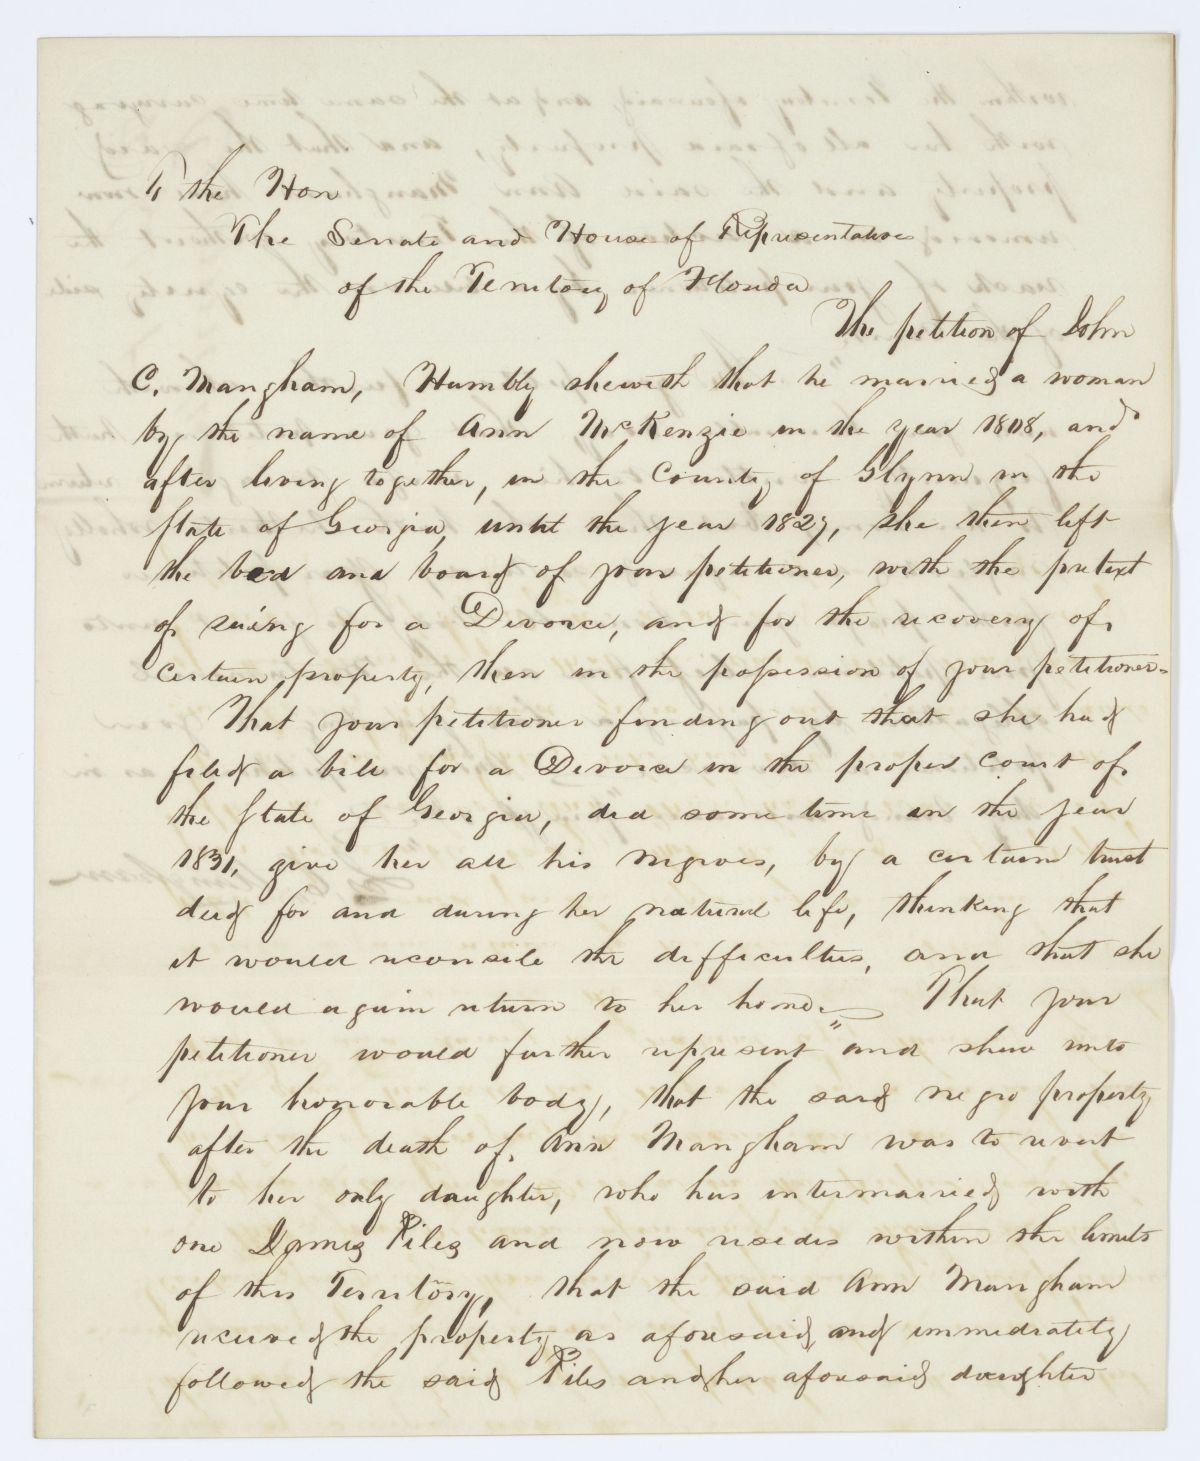 To the Hon
The Senate and House of Representatives
of the Territory of Florida
The petition of John
C. Mangham, Humbly sheweth that he married a woman
by the name of Ann McKenzie in the year 1808, and
after living together, in the County of Glynn in the
State of Georgia, until the year 1829, she then left
the bed and board of your petitioner, with the pretext
of suing for a Divorce, and for the recovery of,
certain property, then in the possession of your petitioner-
That your petitioner finding out that she had
filed a bill for a Divorce in the proper Court of,
the State of Georgia, did some time in the year
1831, give her all his negroes, by a certain trust
deed for and during her natural life, thinking that
it would reconsile the difficulties, and that she
would again return to her home. That your
petitioner would further represent and shew unto
your honorable body, that the said negro property
after the death of, Ann Mangham was to revert
to her only daughter, who has intermarried with
one James Piles and now resides within the limits
of this Territory, that the said Ann Mangham
received the property as aforesaid, and immediately
followed the said Piles and her aforesaid daughter